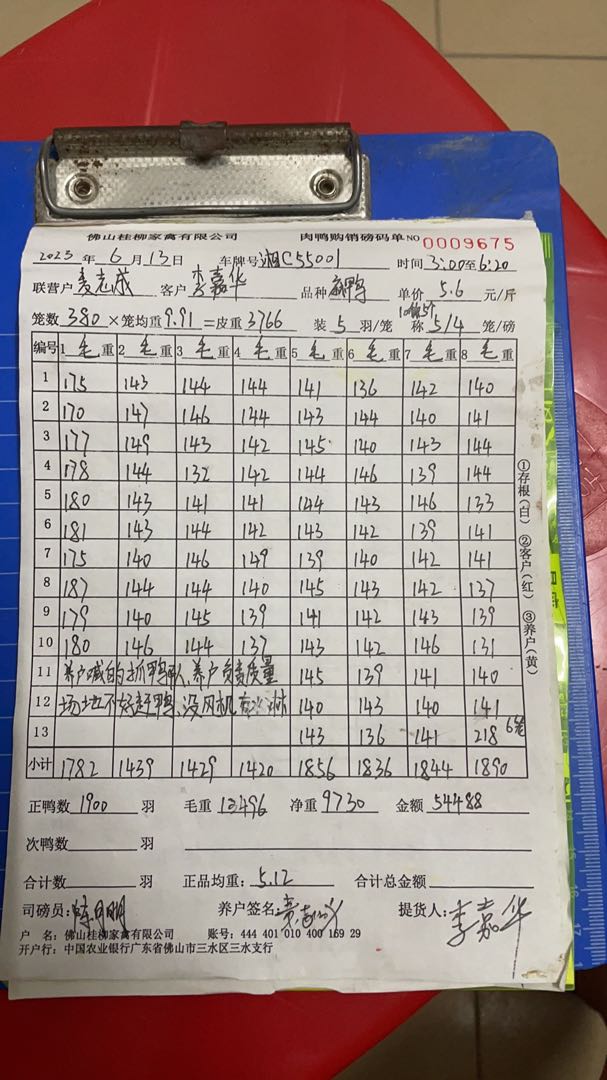 佛山桂柳家禽有限公司 肉鸭购销磅码单 NO 0009675
2023 年 6 月 13 日 车牌号 湘C55001 时间 3:00至6:20
联营户 麦志成 客户 李嘉华 品种 麻鸭 单价 5.6 元/斤
笼数 380 × 笼均重 9.91 =皮重 3766 装 5 羽/笼 称 5/4 笼/磅
编号 1 毛 重 2 毛 重 3 毛 重 4 毛 重 5 毛 重 6 毛 重 7 毛 重 8 毛 重
1 175 143 144 144 141 136 142 140
2 170 147 146 144 143 144 140 141
3 177 149 143 142 145 140 143 144
4 178 144 132 142 144 146 139 144
5 180 143 141 141 144 143 146 133
6 181 143 144 142 143 142 139 141
7 175 140 146 149 139 140 142 141
8 187 144 144 140 145 143 142 137
9 179 140 145 139 141 142 143 139
10 180 146 144 137 143 142 146 131
11 养户喊的抓鸭队、养户负责质量 145 139 141 140
12 场地不好赶鸭、没风机 140 143 140 141
13 143 136 141 218 6笼
小计 1782 1439 1429 1420 1856 1836 1844 1890
①存根(白) ②客户(红) ③养户(黄)
正鸭数 1900 羽 毛重 13496 净重 9730 金额 54488
次鸭数 羽
合计数 羽 正品均重: 5.12 合计总金额
司磅员: 养户签名: 提货人: 李嘉华
户 名: 佛山桂柳家禽有限公司 账号: 444 401 010 400 169 29
开户行: 中国农业银行广东省佛山市三水区三水支行